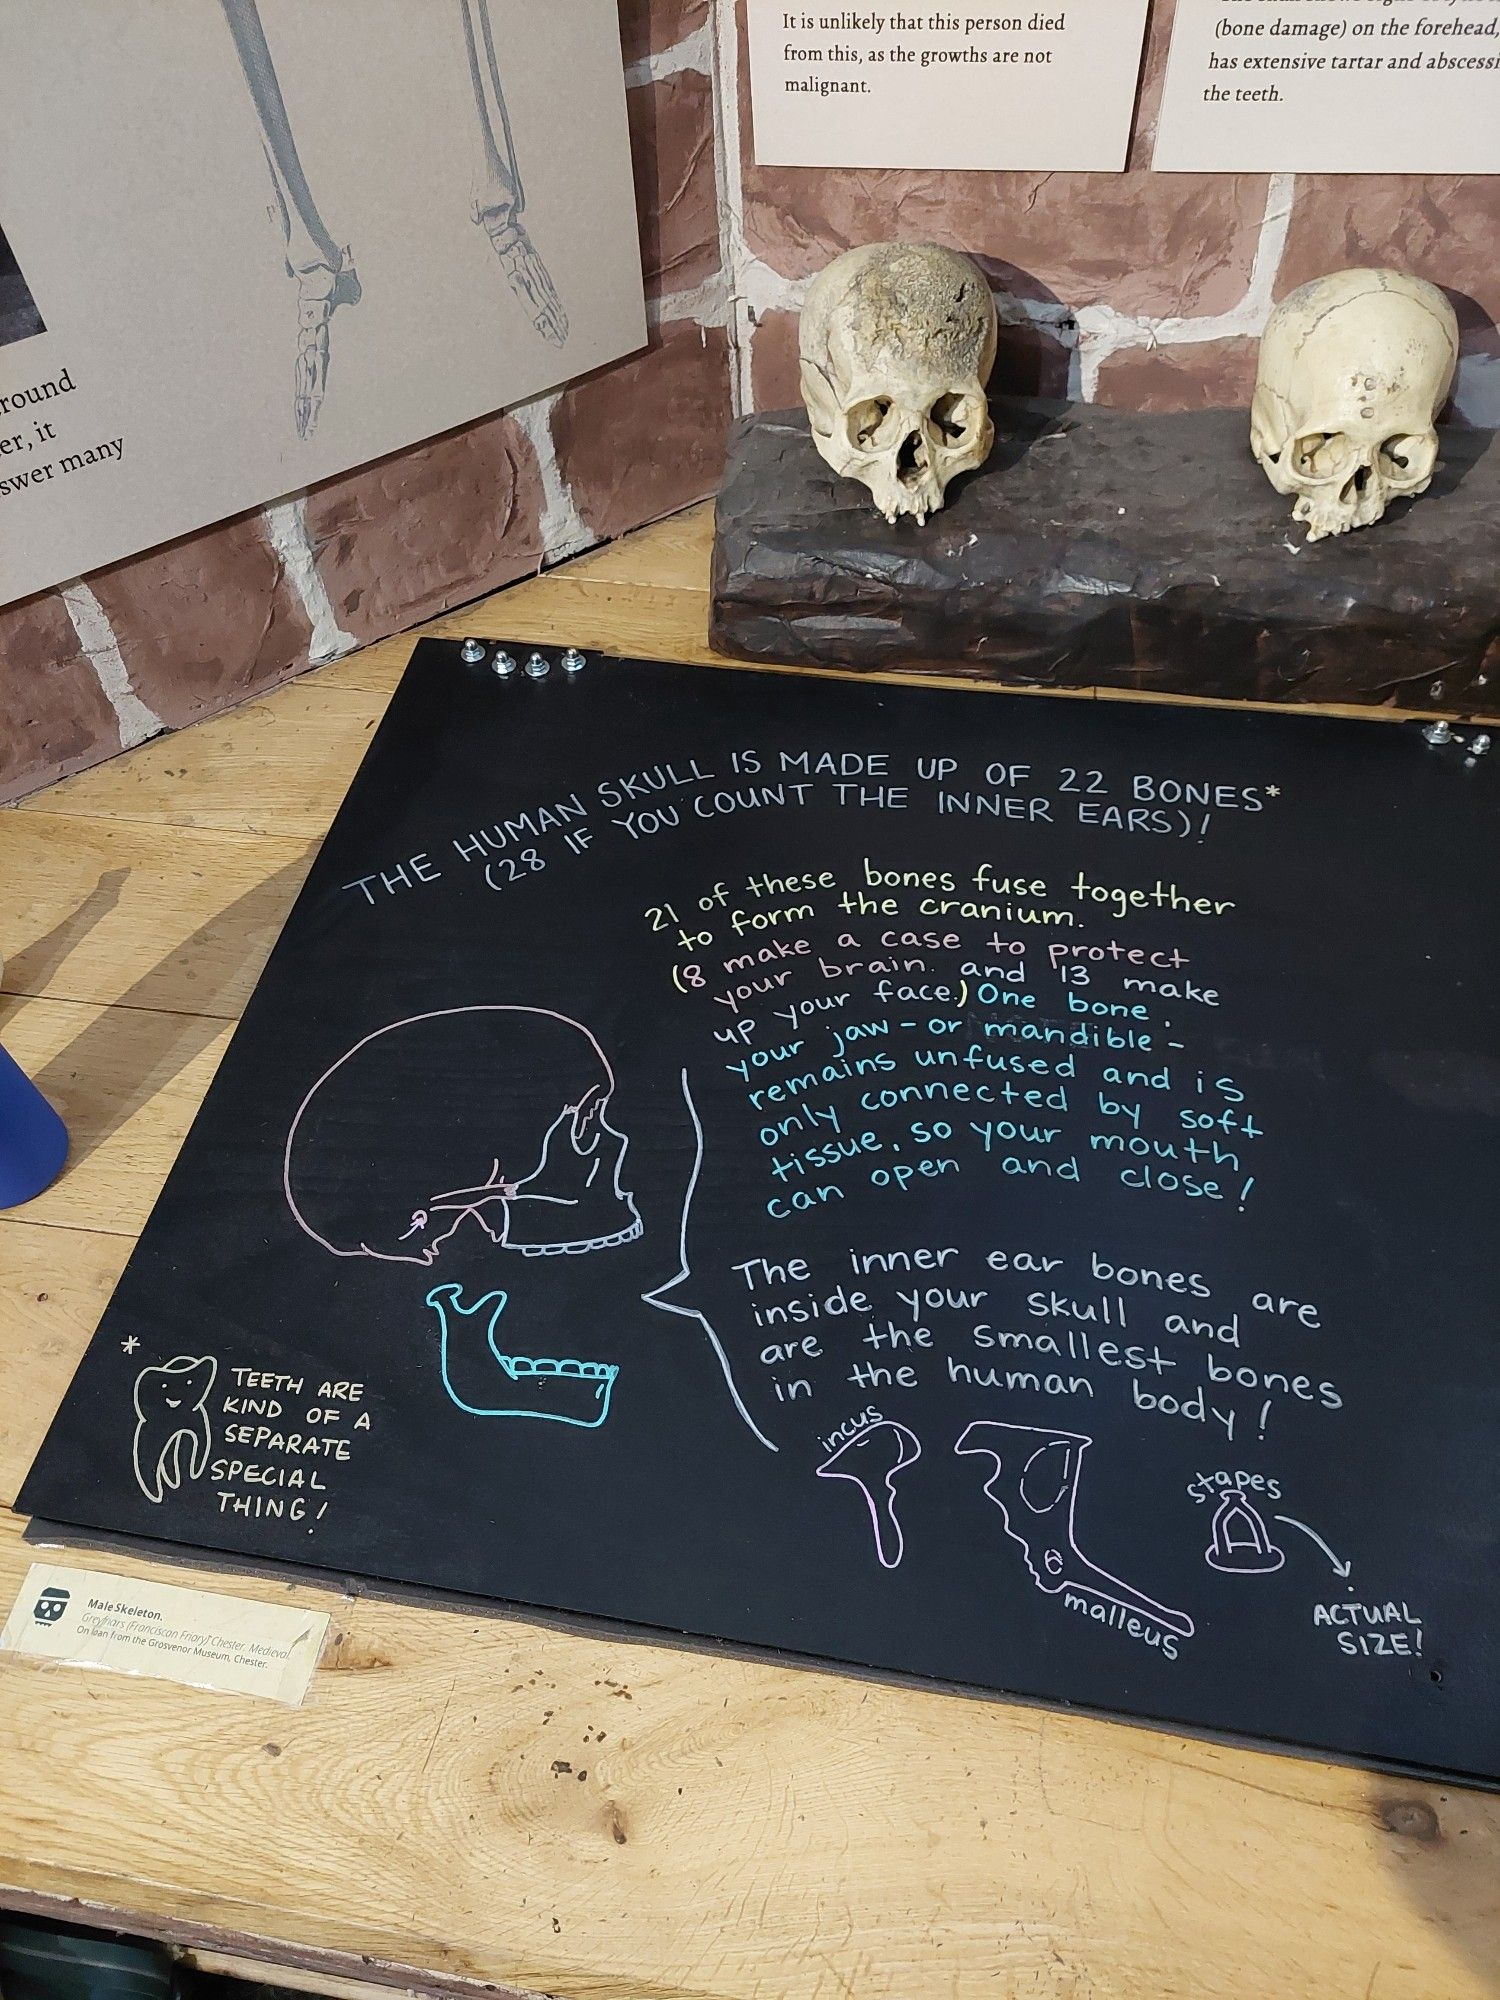 It is unlikely that this person died
from this, as the growths are not
malignant.
(bone damage) on the forehead,
has extensive tartar and
the teeth.
er, it
many
THE HUMAN SKULL IS MADE UP OF 22 BONES*
(28 IF YOU COUNT THE INNER EARS)!
21 of these bones fuse together
to form the cranium.
(8 make a case to protect
your brain. and 13 make
up your face.) One bone -
your jaw - or mandible -
remains unfused and is
only connected by soft
tissue, so your mouth
can open and close!
The inner ear bones are
inside your skull and
are the smallest bones
in the human body!
incus
malleus
stapes
ACTUAL
SIZE!
*
TEETH ARE
KIND OF A
SEPARATE
SPECIAL
THING!
Male Skeleton.
Greyfriars (Franciscan Friary) Chester. Medieval.
On loan from the Grosvenor Museum, Chester.